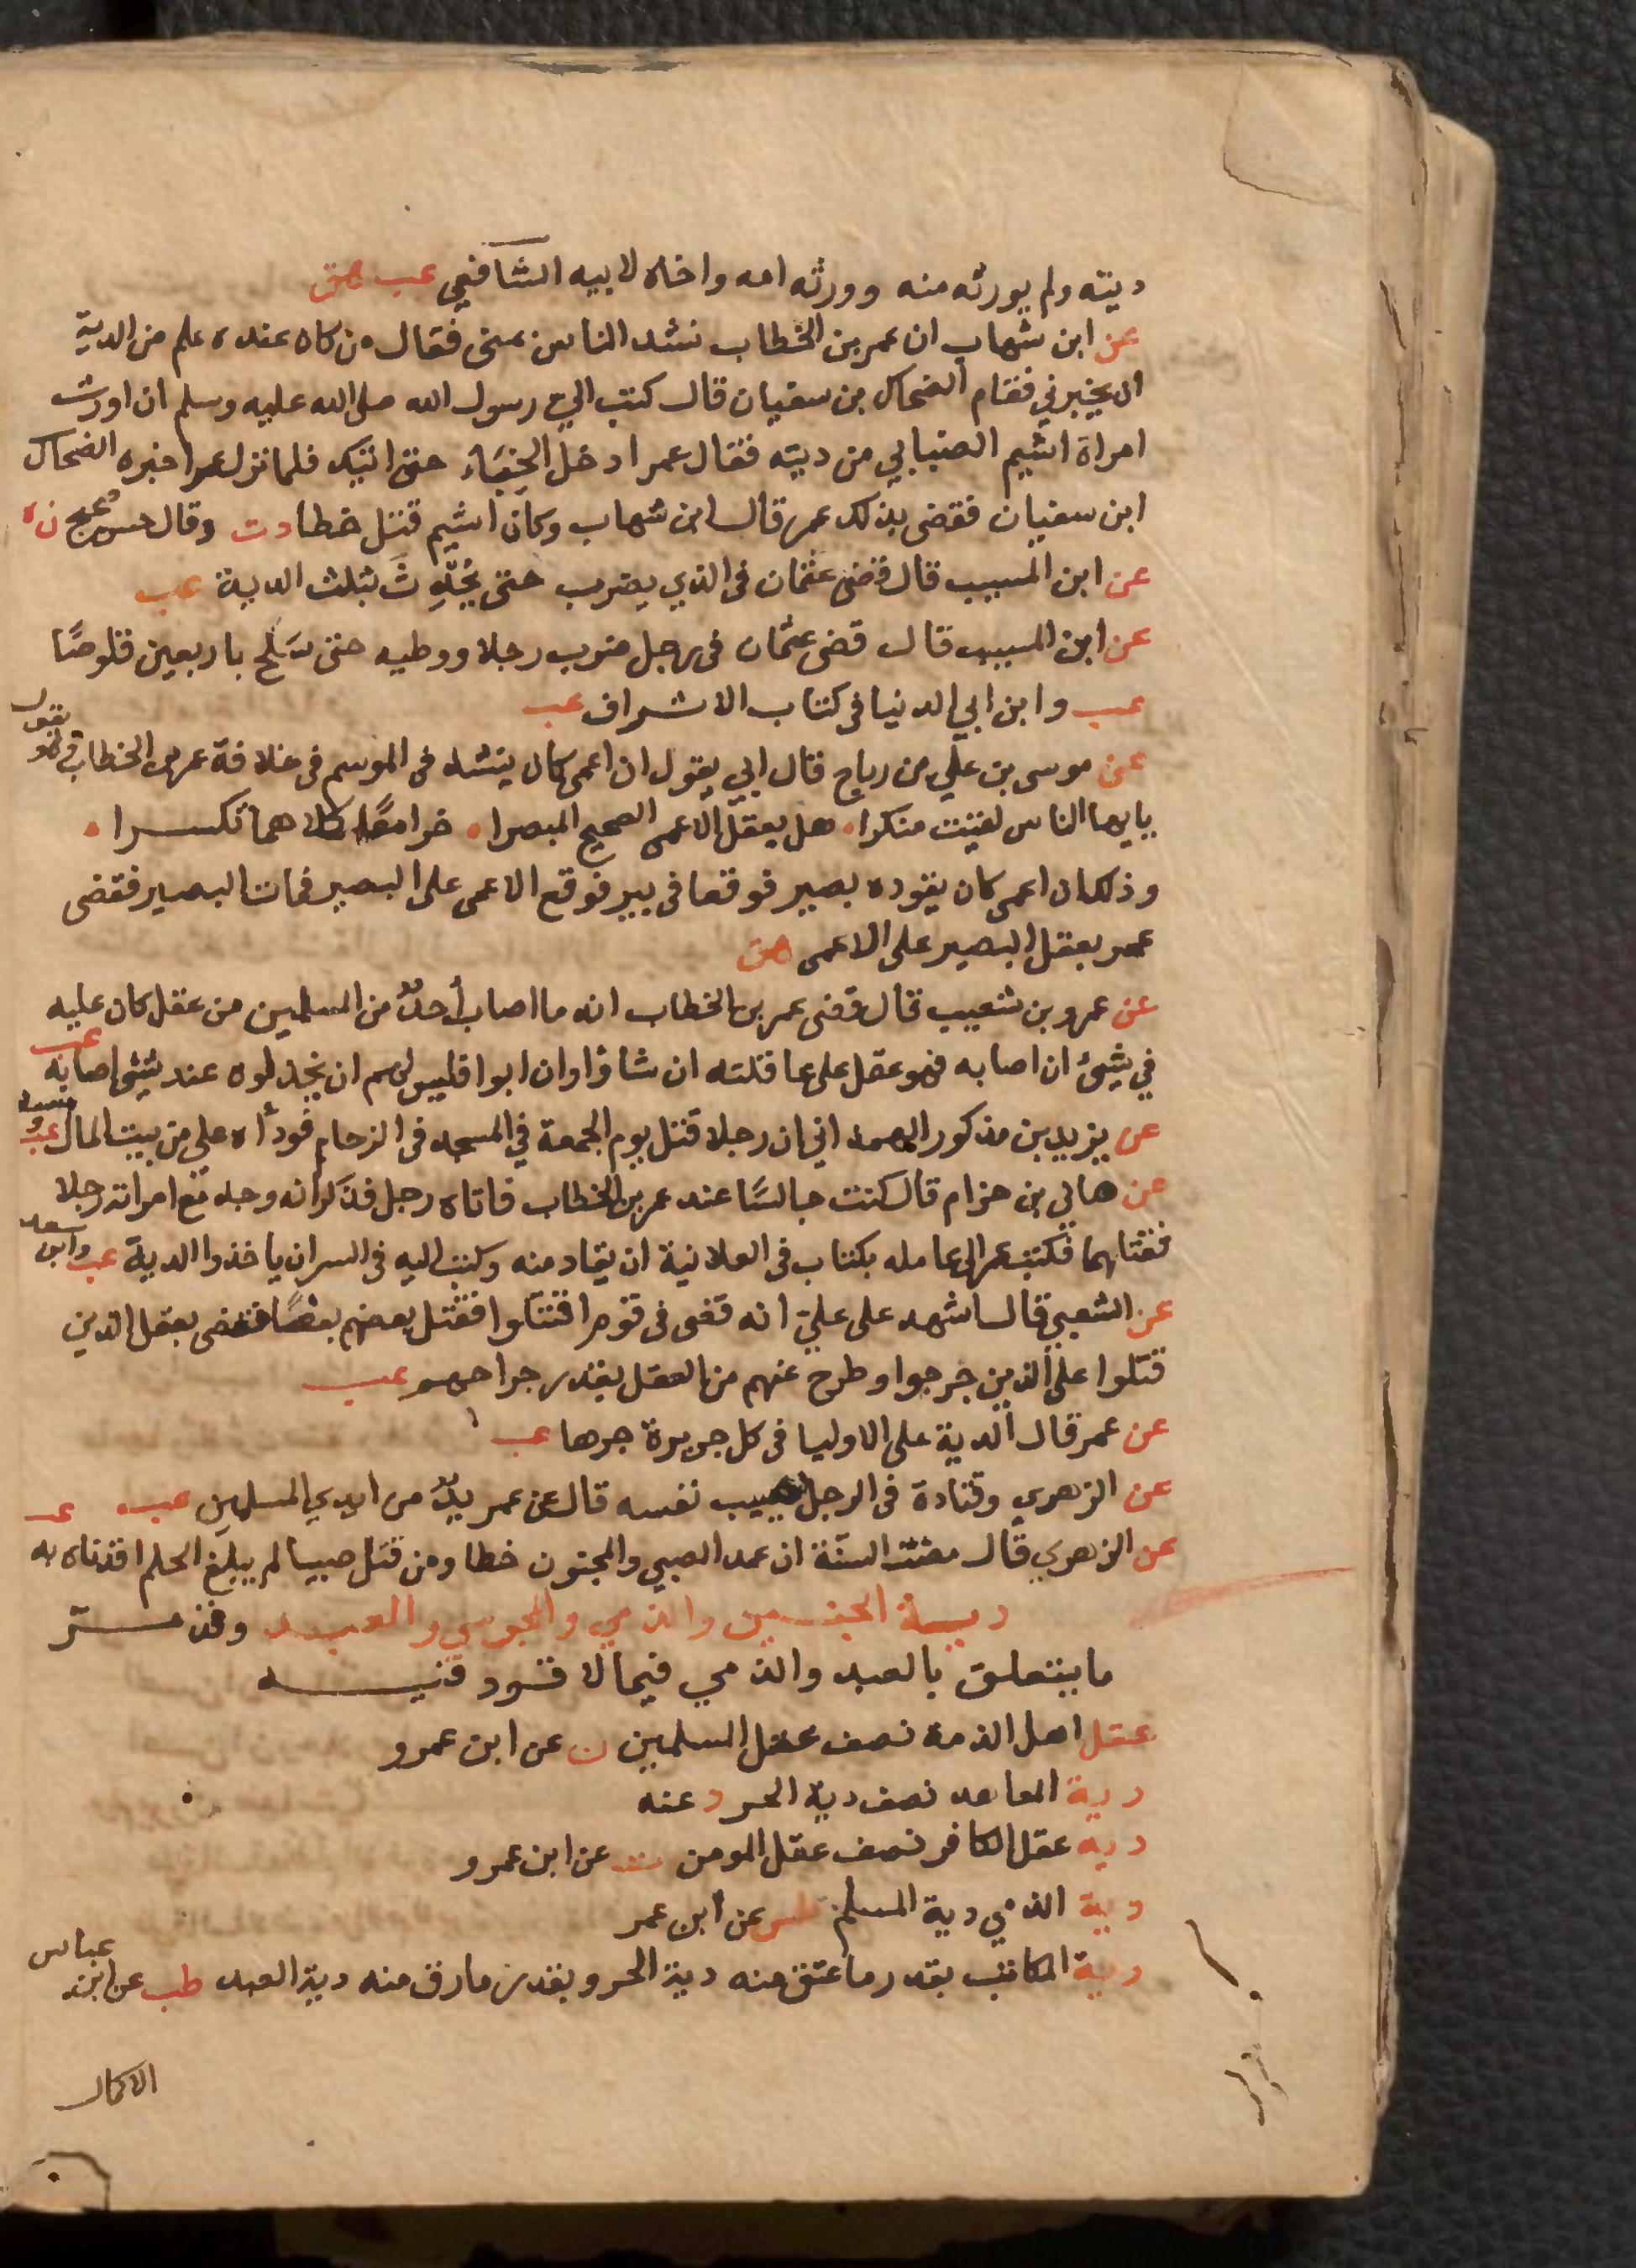 ديته ولم يورثه منه وورثه امه واخاه لابيه الشافعي عب هق
عن ابن شهاب ان عمر بن الخطاب نشد الناس بمنى فقال من كان عنده علم من الدية
ان يخبرني فقام الضحاك بن سفيان قال كتب الي رسول الله صلى الله عليه وسلم ان اورث
امراة اشيم الضبابي من ديته فقال عمر ادخل الخباء حتى اتيك فلما نزل عمر اخبره الضحاك
ابن سفيان فقضى بذلك عمر قال ابن شهاب وكان اشيم قتل خطا د ت وقال حسن صحيح ن ه
عن ابن المسيب قال قضى عثمان فى الذي يضرب حتى يُحْدِث بثلث الدية عب
عن ابن المسيب قال قضى عثمان فى رجل ضرب رجلا ووطيه حتى سَلَح باربعين قلوصًا
عب وابن ابي الدنيا فى كتاب الاشراف عب
عن موسى بن علي بن رباح قال ابي يقول ان اعمى كان ينشد فى الموسم فى خلافة عمر بن الخطاب وهو يقول
يايها الناس لقيت منكرا • هل يعقل الاعمى الصحيح المبصرا • خرا معًا كلاهما تكسرا •
وذلك ان اعمى كان يقوده بصير فوقعا فى بير فوقع الاعمى على البصير فمات البصير فقضى
عمر بعقل البصير على الاعمى هق
عن عمرو بن شعيب قال قضى عمر بن الخطاب انه ما اصاب أحدٌ من المسلمين من عقل كان عليه
في شيئ ان اصابه فهو عقل على عاقلته ان شاؤا وان ابوا فليس لهم ان يخذلوه عند شيئ اصابه عب
عن يزيد بن مذكور الهمداني ان رجلا قتل يوم الجمعة في المسجد فى الزحام فودأه علي من بيت المال عب ومسدد
عن هانى بن حزام قال كنت جالسًا عند عمر بن الخطاب فاتاه رجل فذكر انه وجد مع امراته رجلا
فقتلهما فكتب عمر الى عامله بكتاب فى العلانية ان يقاد منه وكتب اليه فى السر ان ياخذوا الدية عب وابن سعد
عن الشعبي قال اشهد على علي انه قضى فى قوم اقتتلوا فقتل بعضهم بعضًا فقضى بعقل الذين
قتلوا على الذين جرحوا وطرح عنهم من العقل بقدر جراحهم عب
عن عمر قال الدية على الاوليا فى كل جريرة جرها عب
عن الزهري وقتادة فى الرجل يصيب نفسه قال عن عمر يدٌ من ايدي المسلمين عب
عن الزهري قال مضت السنّة ان عمد الصبي والمجنون خطا ومن قتل صبيا لم يبلغ الحلم اقدناه به عب
دية الجنين والذمي والمجوسي والعبد وقد مرّ
ما يتعلق بالعبد والذمي فيما لا قود فيه
عقل اهل الذمة نصف عقل المسلمين ن عن ابن عمرو
دية المعاهد نصف دية الحر د عنه
دية عقل الكافر نصف عقل المومن ت عن ابن عمرو
دية الذمي دية المسلم طس عن ابن عمر
دية المكاتب بقدر ما عتق منه دية الحر وبقدر ما رق منه دية العبد طب عن ابن عباس
الاكمال